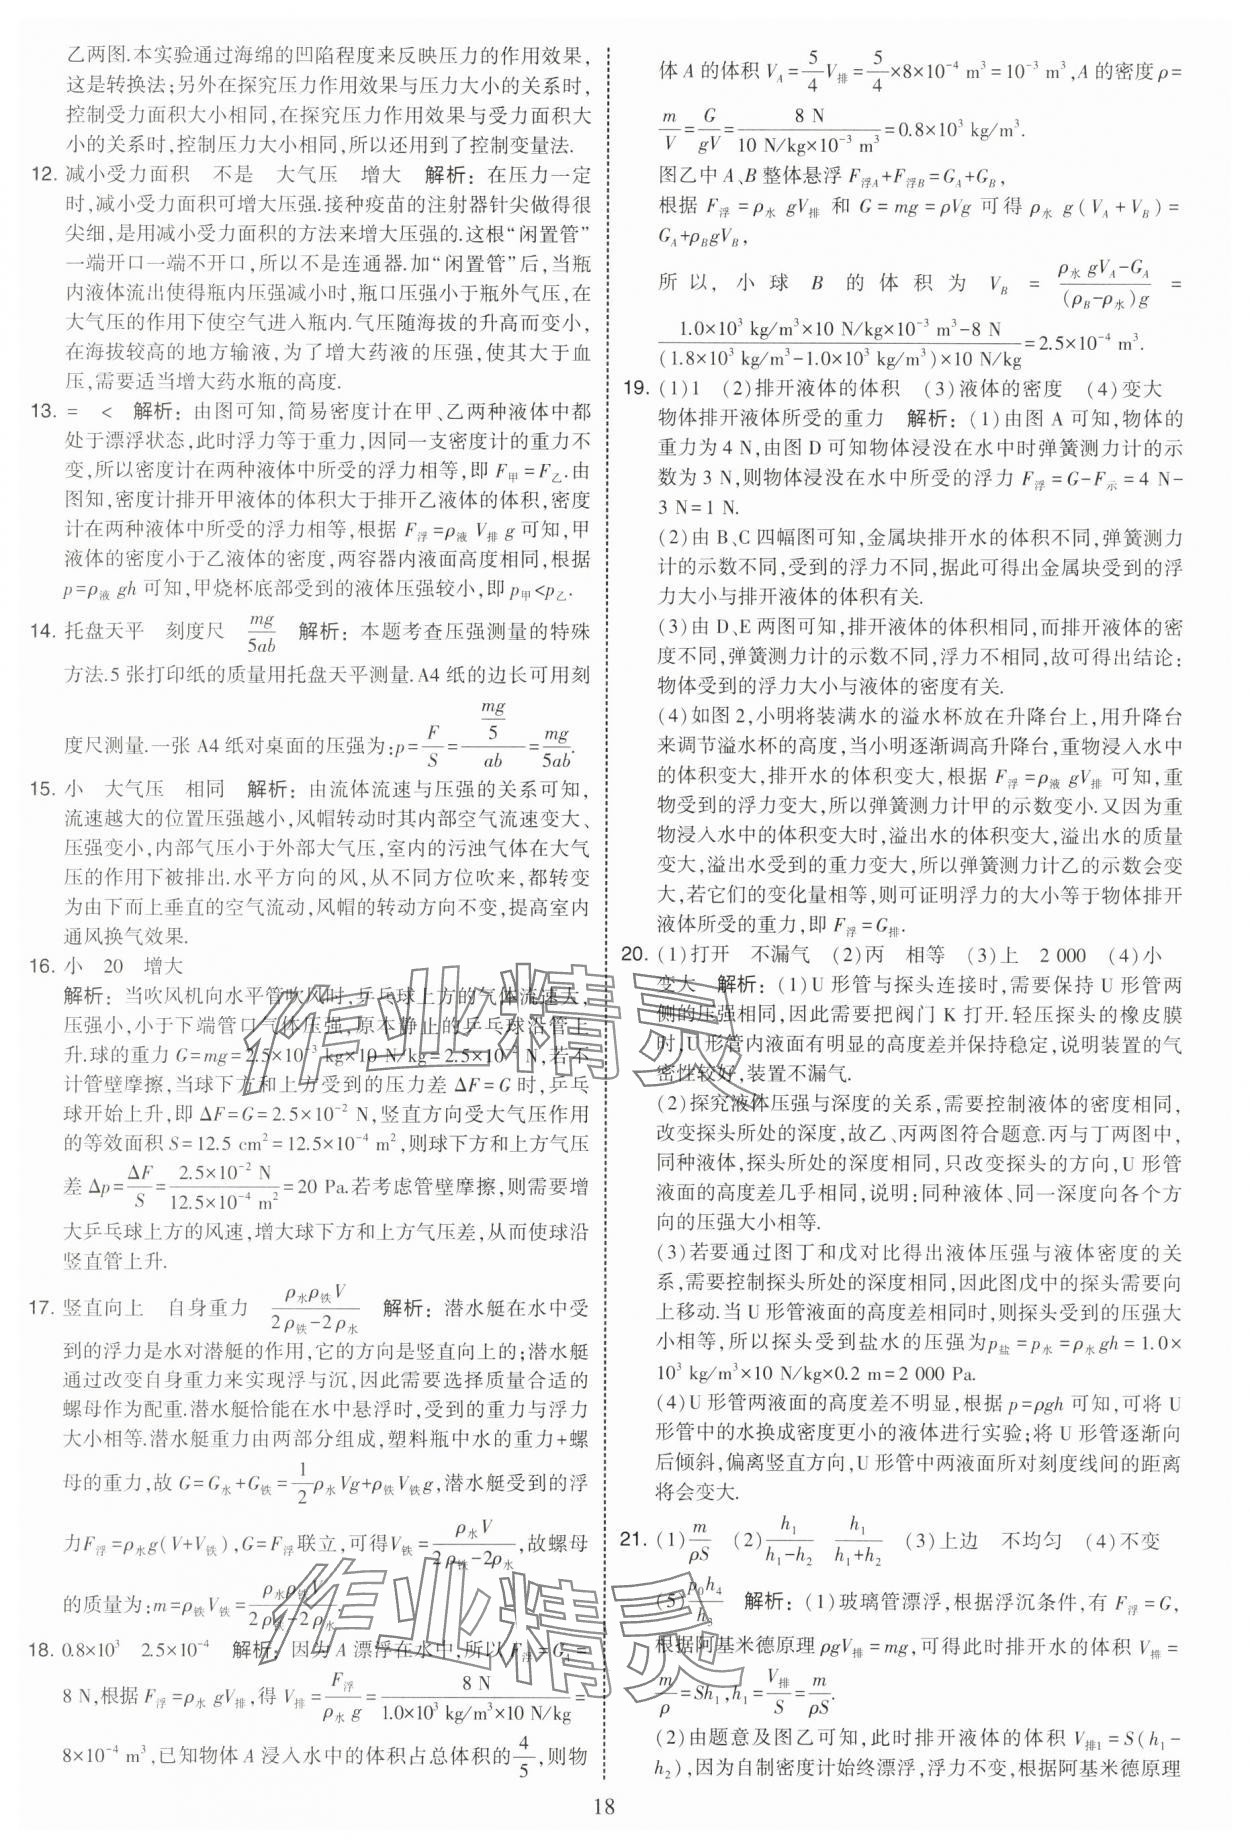 乙两图.本实验通过海绵的凹陷程度来反映压力的作用效果,
这是转换法;另外在探究压力作用效果与压力大小的关系时,
控制受力面积相同,在探究压力作用效果与受力面积大
小的关系时,控制压力大小相同,所以还用到了控制变量法.
12. 减小受力面积 不是 大气压 增大 解析:在压力一定
时,减小受力面积可增大压强.接种疫苗的注射器针尖做得很
尖细,是用减小受力面积的方法来增大压强的.这根“闲置管”
一端开口一端不开口,所以不是连通器.加“闲置管”后,当瓶
内液体流出使得瓶内压强减小时,瓶口压强小于瓶外气压,在
大气压的作用下使空气进入瓶内.气压随海拔的升高而变小,
在海拔较高的地方输液,为了增大药液的压强,使其大于血
压,需要适当增大药水瓶的高度.
13. = < 解析:由图可知,简易密度计在甲、乙两种液体中都
处于漂浮状态,此时浮力等于重力,因同一支密度计的重力不
变,所以密度计在两种液体中所受的浮力相等,即 F甲=F乙.由
图知,密度计排开甲液体的体积大于排开乙液体的体积,密度
计在两种液体中所受的浮力相等,根据 F浮=ρ液 V排 g 可知,甲
液体的密度小于乙液体的密度,两容器内液面高度相同,根据
p=ρ液 gh 可知,甲烧杯底部受到的液体压强较小,即 p甲<p乙.
14. 托盘天平 刻度尺 mg/5ab 解析:本题考查压强测量的特殊
方法.5 张打印纸的质量用托盘天平测量.A4 纸的边长可用刻
度尺测量.一张 A4 纸对桌面的压强为:p=F/S=(mg/5)/ab=mg/5ab.
15. 小 大气压 相同 解析:由流体流速与压强的关系可知,
流速越大的位置压强越小,风帽转动时其内部空气流速变大、
压强变小,内部气压小于外部大气压,室内的污浊气体在大气
压的作用下被排出.水平方向的风,从不同方位吹来,都转变
为由下而上垂直的空气流动,风帽的转动方向不变,提高室内
通风换气效果.
16. 小 20 增大
解析:当吹风机向水平管吹风时,乒乓球上方的气体流速大,
压强小,小于下端管口气体压强,原本静止的乒乓球沿管上
升.球的重力 G=mg=2.5×10⁻³ kg×10 N/kg=2.5×10⁻² N,若不
计管壁摩擦,当球下方和上方受到的压力差 ΔF=G 时,乒乓
球开始上升,即 ΔF=G=2.5×10⁻² N,竖直方向受大气压作用
的等效面积 S=12.5 cm²=12.5×10⁻⁴ m²,则球下方和上方气压
差 Δp=ΔF/S=(2.5×10⁻² N)/(12.5×10⁻⁴ m²)=20 Pa.若考虑管壁摩擦,则需要增
大乒乓球上方的风速,增大球下方和上方气压差,从而使球沿
竖直管上升.
17. 竖直向上 自身重力 ρ水ρ铁V/(2ρ铁-2ρ水) 解析:潜水艇在水中受
到的浮力是水对潜艇的作用,它的方向是竖直向上的;潜水艇
通过改变自身重力来实现浮与沉,因此需要选择质量合适的
螺母作为配重.潜水艇恰能在水中悬浮时,受到的重力与浮力
大小相等.潜水艇重力由两部分组成,塑料瓶中水的重力+螺
母的重力,故 G=G水+G铁=1/2ρ水Vg+ρ铁V铁g,潜水艇受到的浮
力F浮=ρ水g(V+V铁),G=F浮联立,可得V铁=ρ水V/(2ρ铁-2ρ水),故螺母
的质量为:m=ρ铁V铁=ρ水ρ铁V/(2ρ铁-2ρ水).
18. 0.8×10³ 2.5×10⁻⁴ 解析:因为 A 漂浮在水中,所以 F浮=G_A=
8 N,根据 F浮=ρ水 gV排,得 V排=F浮/(ρ水 g)=8 N/(1.0×10³ kg/m³×10 N/kg)=
8×10⁻⁴ m³,已知物体 A 浸入水中的体积占总体积的4/5,则物
体 A 的体积 V_A=5/4V排=5/4×8×10⁻⁴ m³=10⁻³ m³,A 的密度 ρ=
m/V=G/gV=8 N/(10 N/kg×10⁻³ m³)=0.8×10³ kg/m³.
图乙中 A、B 整体悬浮 F浮A+F浮B=G_A+G_B,
根据 F浮=ρ水 gV排 和 G=mg=ρVg 可得 ρ水 g(V_A+V_B)=
G_A+ρ_BgV_B,
所以,小球 B 的体积为 V_B=(ρ水 gV_A-G_A)/((ρ_B-ρ水)g)=
(1.0×10³ kg/m³×10 N/kg×10⁻³ m³-8 N)/((1.8×10³ kg/m³-1.0×10³ kg/m³)×10 N/kg)=2.5×10⁻⁴ m³.
19. (1)1 (2)排开液体的体积 (3)液体的密度 (4)变大
物体排开液体所受的重力 解析:(1)由图 A 可知,物体的
重力为 4 N,由图 D 可知物体浸没在水中时弹簧测力计的示
数为 3 N,则物体浸没在水中所受的浮力 F浮=G-F示=4 N-
3 N=1 N.
(2)由 B、C 四幅图可知,金属块排开水的体积不同,弹簧测力
计的示数不同,受到的浮力不同,据此可得出金属块受到的浮
力大小与排开液体的体积有关.
(3)由 D、E 两图可知,排开液体的体积相同,而排开液体的密
度不同,弹簧测力计的示数不同,浮力不相同,故可得出结论:
物体受到的浮力大小与液体的密度有关.
(4)如图 2,小明将装满水的溢水杯放在升降台上,用升降台
来调节溢水杯的高度,当小明逐渐调高升降台,重物浸入水中
的体积变大,排开水的体积变大,根据 F浮=ρ液 gV排 可知,重
物受到的浮力变大,所以弹簧测力计甲的示数变小.又因为重
物浸入水中的体积变大时,溢出水的体积变大,溢出水的质量
变大,溢出水受到的重力变大,所以弹簧测力计乙的示数会变
大,若它们的变化量相等,则可证明浮力的大小等于物体排开
液体所受的重力,即 F浮=G排.
20. (1)打开 不漏气 (2)丙 相等 (3)上 2 000 (4)小
变大 解析:(1)U 形管与探头连接时,需要保持 U 形管两
侧的压强相同,因此需要把阀门 K 打开.轻压探头的橡皮膜
时,U 形管内液面有明显的高度差并保持稳定,说明装置的气
密性较好,装置不漏气.
(2)探究液体压强与深度的关系,需要控制液体的密度相同,
改变探头所处的深度,故乙、丙两图符合题意.丙与丁两图中,
同种液体,探头所处的深度相同,只改变探头的方向,U 形管
液面的高度差几乎相同,说明:同种液体、同一深度向各个方
向的压强大小相等.
(3)若要通过图丁和戊对比得出液体压强与液体密度的关
系,需要控制探头所处的深度相同,因此图戊中的探头需要向
上移动.当 U 形管液面的高度差相同时,则探头受到的压强大
小相等,所以探头受到盐水的压强为p盐=p水=ρ水gh=1.0×
10³ kg/m³×10 N/kg×0.2 m=2 000 Pa.
(4)U 形管两液面的高度差不明显,根据 p=ρgh 可知,可将 U
形管中的水换成密度更小的液体进行实验;将 U 形管逐渐向
后倾斜,偏离竖直方向,U 形管中两液面所对刻度线间的距离
将会变大.
21. (1)m/ρS (2)h₁/(h₁-h₂) h₁/(h₁+h₂) (3)上边 不均匀 (4)不变
(5)ρ₀h₄/h₃ 解析:(1)玻璃管漂浮,根据浮沉条件,有 F浮=G,
根据阿基米德原理 ρgV排=mg,可得此时排开水的体积 V排=
m/ρ=Sh₁,h₁=V排/S=m/ρS.
(2)由题意及图乙可知,此时排开液体的体积 V排1=S(h₁-
h₂),因为自制密度计始终漂浮,浮力不变,根据阿基米德原理
18
作业精灵
作业精灵